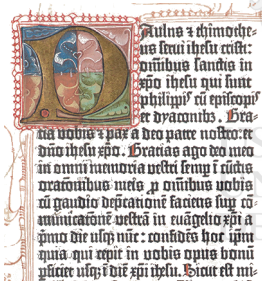 Paulus ⁊ thimotheus
us serui ihesu cristi:
omībus sanctis in
xpō ihesu qui sunt
philippis cū episcopis
et dyaconibꝫ. Gra-
tia vobis ⁊ pax a deo patre nostro: et
dn̄o ihesu xp̄o. Gratias ago deo meo
in omni memoria vestri semp ī cūctis
oratōnibus meis ꝓ omībus vobis
cū gaudio dep̄cationē faciens sup cō-
municatōne vestra in euāgelio xp̄i a
p̄mo die usqꝫ nūc: confidēs hoc ip̄m
quia qui cepit in vobis opus bonū
ꝑficiet usqꝫ ī diē xp̄i ihesu. Sicut est mi-